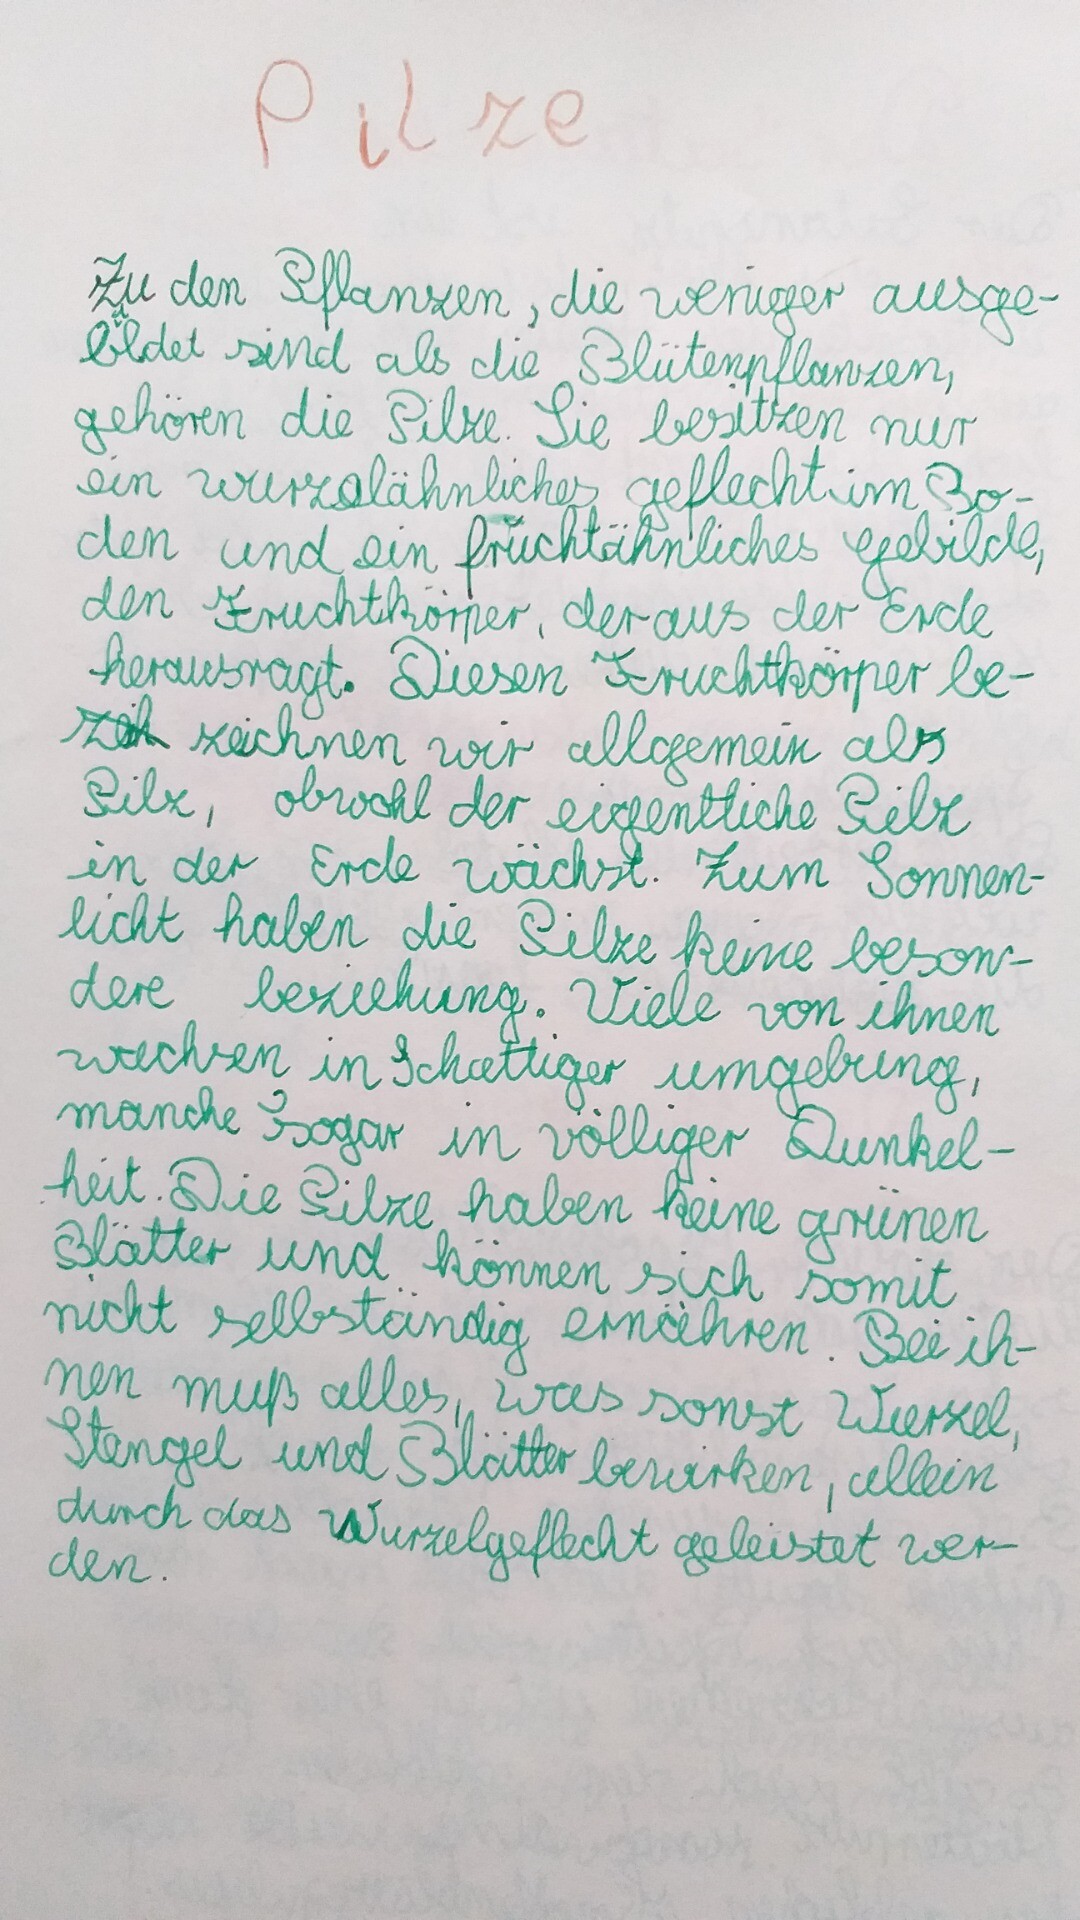 Pilze
Zu den Pflanzen, die weniger ausge-
bildet sind als die Blütenpflanzen,
gehören die Pilze. Sie besitzen nur
ein wurzelähnliches geflecht im Bo-
den und ein fruchtähnliches gebilde,
den Fruchtkörper, der aus der Erde
herausragt. Diesen Fruchtkörper be-
zeichnen wir allgemein als
Pilz, obwohl der eigentliche Pilz
in der Erde wächst. Zum Sonnen-
licht haben die Pilze keine beson-
dere beziehung. Viele von ihnen
wachsen in Schattiger umgebung,
manche sogar in völliger Dunkel-
heit. Die Pilze haben keine grünen
Blätter und können sich somit
nicht selbständig ernähren. Bei ih-
nen muß alles, was sonst Wurzel,
Stengel und Blätter bewirken, allein
durch das Wurzelgeflecht geleistet wer-
den.